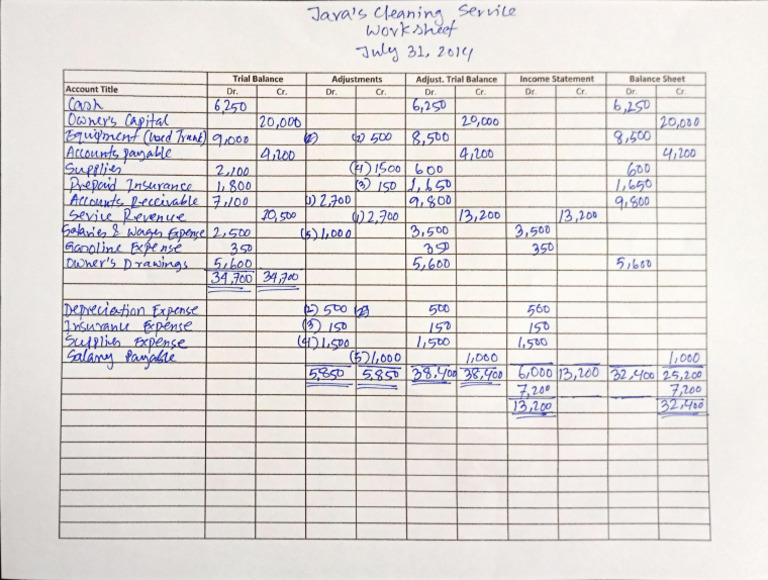 Jara's Cleaning Service
Worksheet
July 31, 2014
Trial Balance Adjustments Adjust. Trial Balance Income Statement Balance Sheet
Account Title Dr. Cr. Dr. Cr. Dr. Cr. Dr. Cr. Dr. Cr.
Cash 6,250 6,250 6,250
Owner's Capital 20,000 20,000 20,000
Equipment (Used Truck) 9,000 (2) 500 8,500 8,500
Accounts payable 4,200 4,200 4,200
Supplies 2,100 (4) 1500 600 600
Prepaid Insurance 1,800 (3) 150 1,650 1,650
Accounts Receivable 7,100 (1) 2,700 9,800 9,800
Service Revenue 10,500 (1) 2,700 13,200 13,200
Salaries & Wages Expense 2,500 (5) 1,000 3,500 3,500
Gasoline Expense 350 350 350
Owner's Drawings 5,600 5,600 5,600
34,700 34,700
Depreciation Expense (2) 500 500 500
Insurance Expense (3) 150 150 150
Supplies Expense (4) 1,500 1,500 1,500
Salary Payable (5) 1,000 1,000 1,000
5,850 5,850 38,400 38,400 6,000 13,200 32,400 25,200
7,200 7,200
13,200 32,400